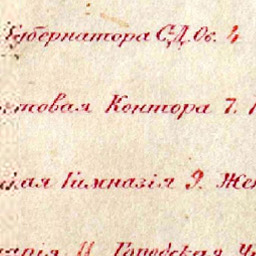 Губернатора С,Д,Ок. 4
товая Контора 7.
кая Гимназія 9. Же
арія 11 Городская Уч